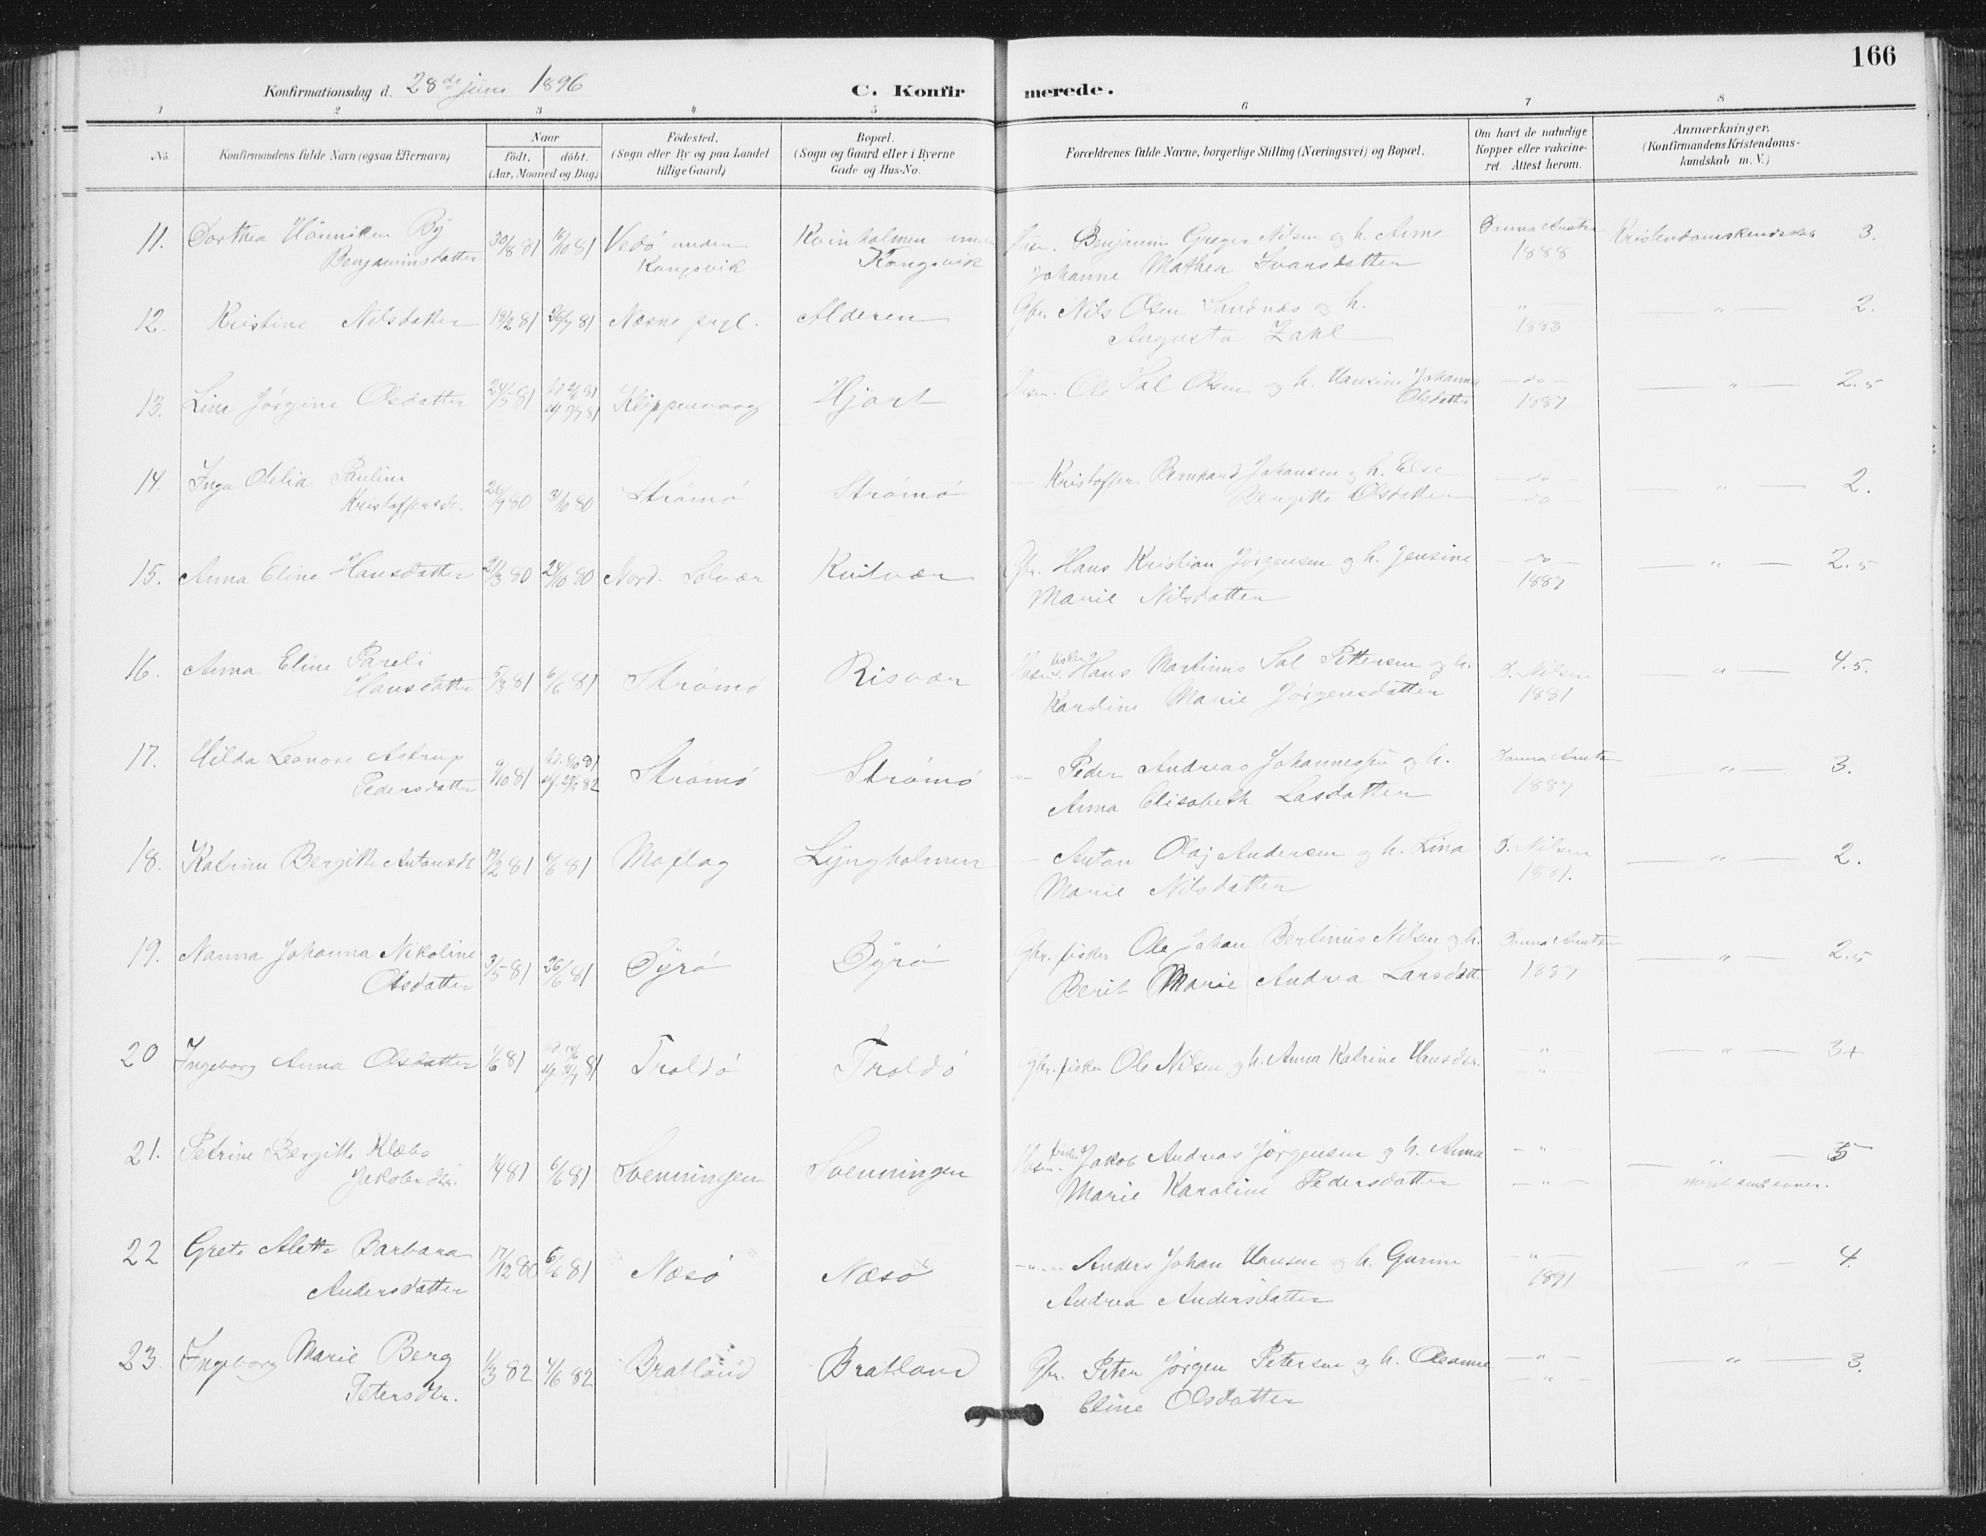 166
Konfirmationsdag d. 28de juni 1896
C. Konfirmerede.
1 2 3 4 5 6 7 8
No.
Konfirmandens fulde Navn (ogsaa Efternavn)
Naar
født. døbt.
(Aar, Maaned og Dag)
Fødested.
(Sogn eller By og paa Landet
tillige Gaard)
Bopæl.
(Sogn og Gaard eller i Byerne
Gade og Hus-No.
Forældrenes fulde Navne, borgerlige Stilling (Næringsvei) og Bopæl.
Om havt de naturlige
Kopper eller vakcine-
ret. Attest herom.
Anmærkninger.
(Konfirmandens Kristendoms-
kundskab m. V.)
11. Dorthea Hönniken By 30/8 81 16/10 81 Vedö under Benjamin Greger Nilsen og h. Anne 3.
Benjaminsdatter Kongsvik Kongsvik Johanne Mathea Ivarsdatter 1888 Kristendomskundskab
12. Kristine Nilsdatter 18/2 81 Næsne prgl. Alderen Gbr. Nils Olsen Sandnæs og h. 2.
Augusta Zahl 1883
13. Line Jørgine Olsdatter 24/5 81 Klippenvaag Hjart Ole Sal Olsen og h. Hansine Johanna — do — 2.5
Olsdatter 1887
14. Inga Odelia Pauline Kristoffer Bernhard Johansen og h. Else — do — 2.
Kristoffersdr. 26/9 80 31/10 80 Strömö Strömö Bergitte Olsdatter — do —
15. Anna Eline Hansdatter 21/3 80 24/10 80 Nord. Solvær Kvitvær Gbr. Hans Kristian Jørgensen og h. Jensine — do — 2.5
Marie Nilsdatter 1887
16. Anna Eline Pareli fisker Hans Martinus Sal Pettersen og h. D. Nilsen 4.5.
Hansdatter 5/3 81 6/6 81 Strömö Risvær Karoline Marie Jørgensdatter 1881
17. Hilda Leonore Astrup 9/10 81 Strömö Strömö Peder Andreas Johannessen og h. 3.
Pedersdatter Anna Elisabeth Lasdatter 1887
18. Katrine Bergitte Antonsdt 17/2 81 6/6 81 Moflag Lyngholmen Anton Olaj Andersen og h. Lina D. Nilsen 2.
Marie Nilsdatter 1881.
19. Nanna Johanna Nikoline 3/5 81 26/6 81 Dyrö Dyrö Gbr. fisker Ole Johan Bertinus Nilsen og h. 2.5
Olsdatter Berit Marie Andrea Larsdatt 1887
20 Ingeborg Anna Olsdatter 1/6 81 Troldö Troldö Gbr. fisker Ole Nilsen og h. Anna Katrine Hansdr. 3+
21. Petrine Bergitte Klæbo fisker Jakob Andreas Jørgensen og h. Anna 5
Jakobsdtr. 1/4 81 6/6 81 Svenningen Svenningen Marie Karoline Pedersdatter meget små evner.
22 Grete Alette Barbara 17/12 80 6/6 81 Næsö Næsö Anders Johan Hansen og h. Gurine 4.
Andersdatter Andrea Andersdatter 1891
23. Ingeborg Marie Berg 1/3 82 4/6 82 Bratland Bratland Gbr. Peter Jørgen Petersen og h. Oleanne 3.
Petersdtr. Eline Olsdatter